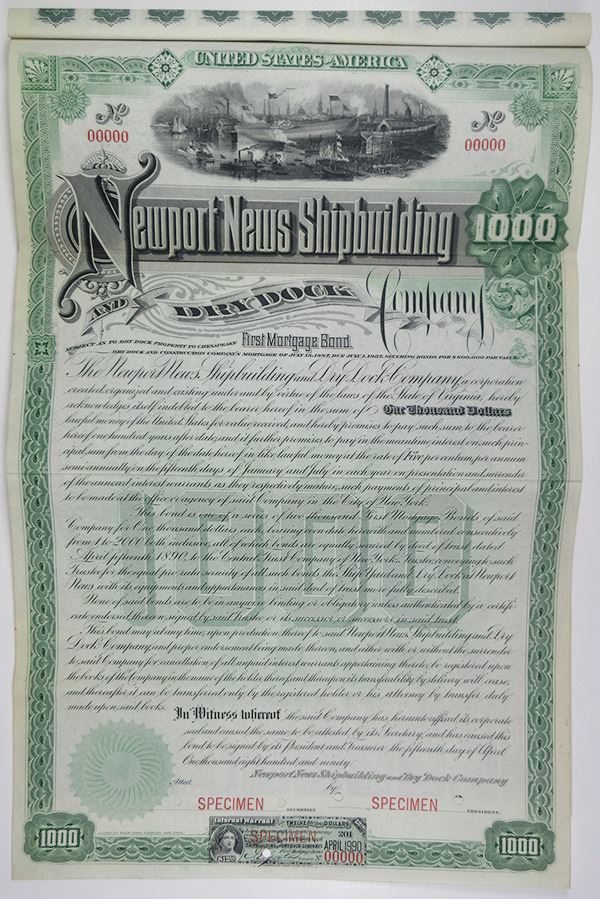 UNITED STATES OF AMERICA
No
00000
No
00000
Newport News Shipbuilding
1000
AND DRY DOCK Company
First Mortgage Bond,
SUBJECT AS TO DRY DOCK PROPERTY TO CHESAPEAKE
DRY DOCK AND CONSTRUCTION COMPANY'S MORTGAGE OF JULY 15, 1887, DUE JULY 1, 1937, SECURING BONDS FOR $600,000 PAR VALUE.
The Newport News Shipbuilding and Dry Dock Company, a corporation
created, organized and existing under and by virtue of the laws of the State of Virginia, hereby
acknowledges itself indebted to the bearer hereof in the sum of One Thousand Dollars
lawful money of the United States for value received, and hereby promises to pay such sum to the bearer
hereof one hundred years after date, and it further promises to pay in the meantime interest on such prin-
cipal sum from the day of the date hereof in like lawful money at the rate of Five per centum, per annum
semi-annually on the fifteenth days of January and July, in each year on presentation and surrender
of the annexed interest warrants as they respectively mature, such payments of principal and interest
to be made at the office or agency of said Company in the City of New York.
This bond is one of a series of two thousand First Mortgage Bonds of said
Company for One thousand dollars each, bearing even date herewith and numbered consecutively
from 1 to 2000 both inclusive, all of which bonds are equally secured by deed of trust dated
April fifteenth 1890, to the Central Trust Company of New York, Trustee, conveying to such
Trustee for the equal pro rata security of all such bonds the Ship Yard and Dry Dock at Newport
News with its equipments and appurtenances in said deed of trust more fully described.
None of said bonds are to be in anywise binding or obligatory unless authenticated by a certifi-
cate endorsed thereon, signed by said Trustee or its successor or successors in said trust.
This bond may at any time, upon production thereof to said Newport News Shipbuilding and Dry
Dock Company and proper endorsement being made thereon, and either with or without the surrender
to said Company for cancellation of all unpaid interest warrants appertaining thereto, be registered upon
the books of the Company in the name of the holder thereof and thereupon its transferability by delivery will cease,
and thereafter it can be transferred only by the registered holder or his attorney by transfer duly
made upon said books.
In Witness whereof the said Company has hereunto affixed its corporate
seal and caused the same to be attested by its Secretary, and has caused this
bond to be signed by its President and Treasurer the fifteenth day of April
One thousand eight hundred and ninety.
Newport News Shipbuilding and Dry Dock Company
Attest by
SPECIMEN SECRETARY. SPECIMEN PRESIDENT.
1000
Interest Warrant TWELVE 50/100 DOLLARS
SPECIMEN 201
APRIL 1990
$12.50 00000
1000